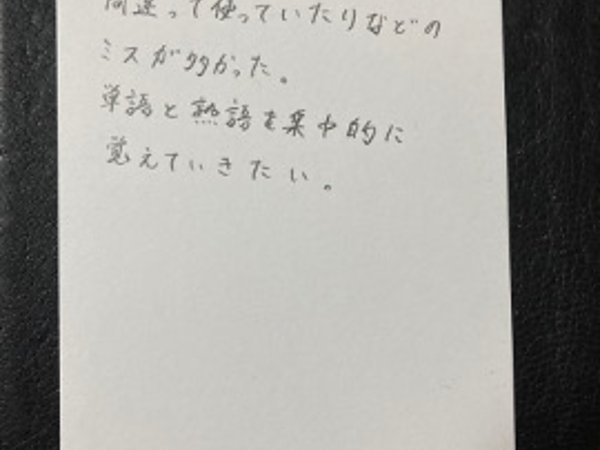 間違って使っていたりなどの
ミスが多かった。
単語と熟語を集中的に
覚えていきたい。